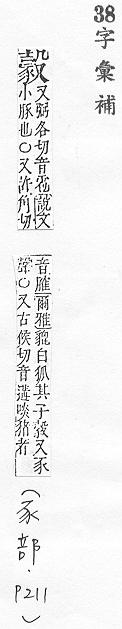 38 字彙補
豰
又弼各切音雹說文
小豚也○又許角切
音爾雅貔白狐其子豰又豕
聲○又古候切音遘啖豬者
(豕部.P211)